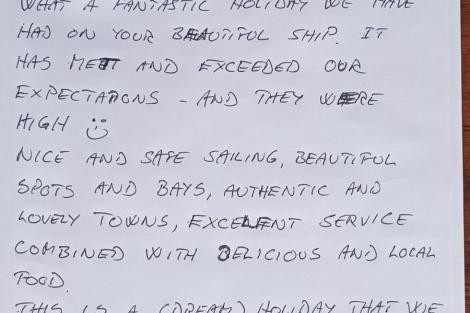 WHAT A FANTASTIC HOLIDAY WE HAVE
HAD ON YOUR BEAUTIFUL SHIP. IT
HAS MET AND EXCEEDED OUR
EXPECTATIONS - AND THEY WERE
HIGH :)
NICE AND SAFE SAILING, BEAUTIFUL
SPOTS AND BAYS, AUTHENTIC AND
LOVELY TOWNS, EXCELENT SERVICE
COMBINED WITH DELICIOUS AND LOCAL
FOOD.
THIS IS A (DREAM) HOLIDAY THAT WE